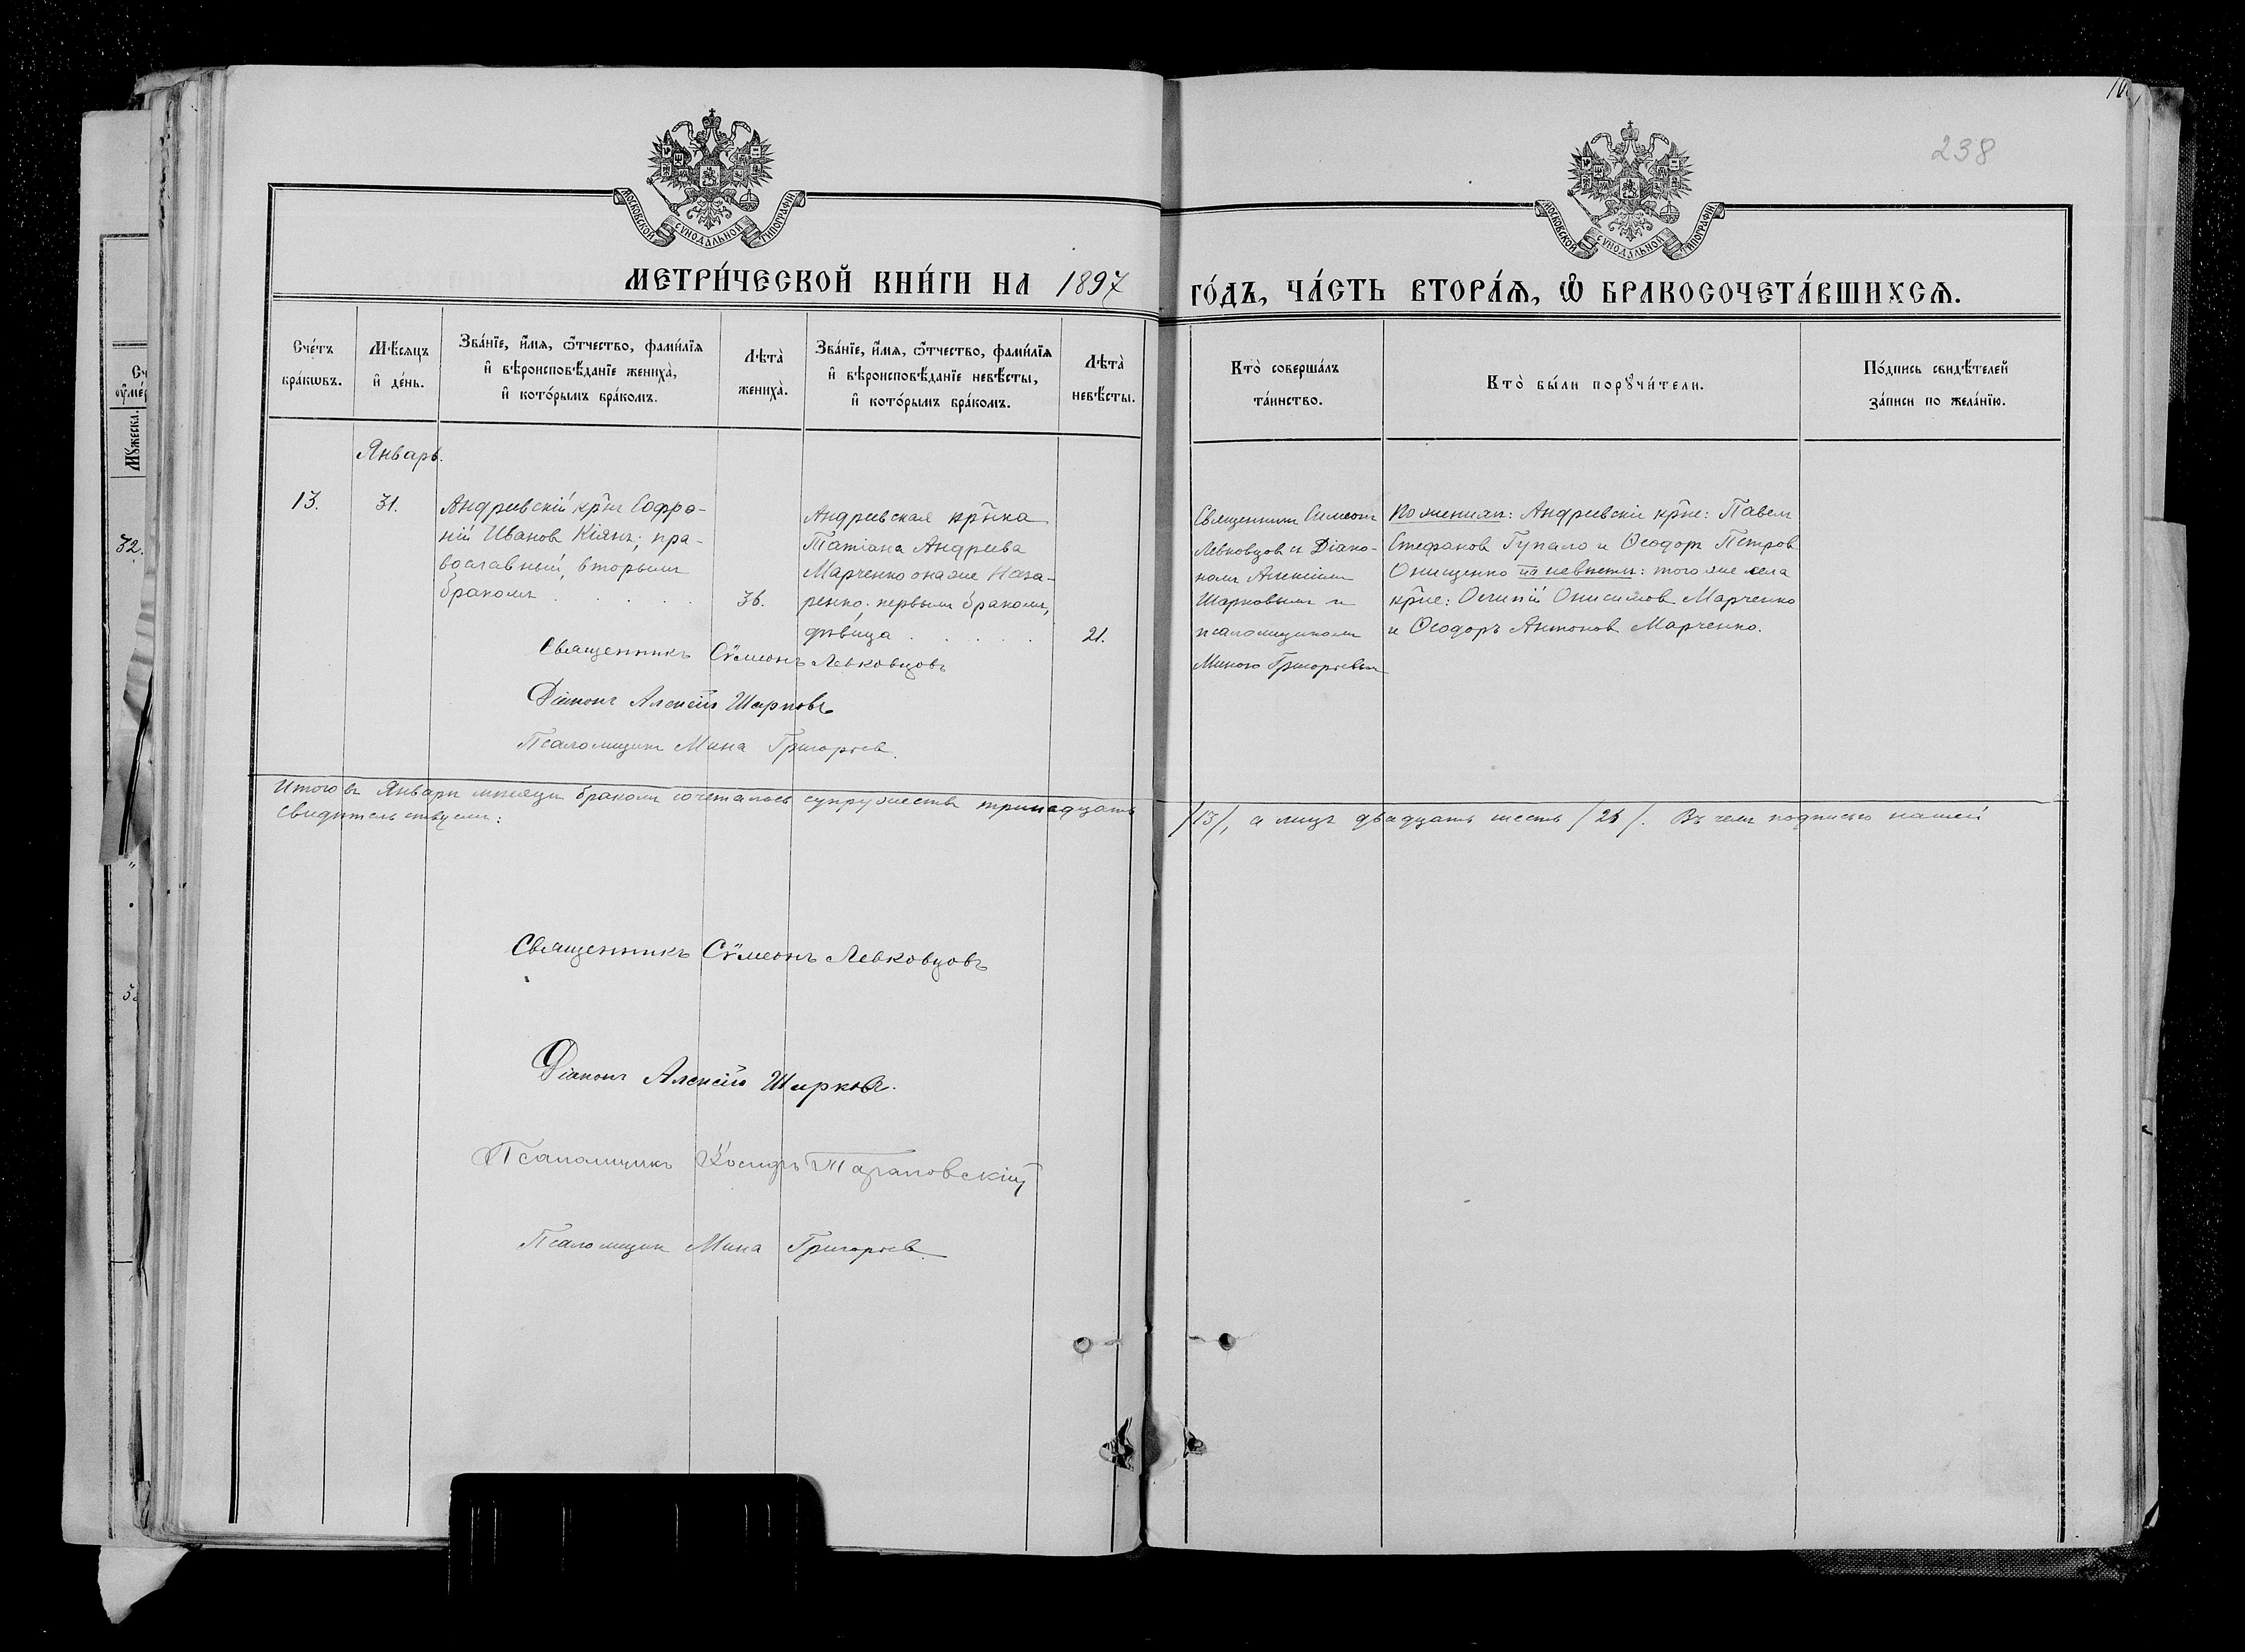 238
МОСКОВСКОЙ СѴНОДАЛЬНОЙ ТИПОГРАФІИ
МОСКОВСКОЙ СѴНОДАЛЬНОЙ ТИПОГРАФІИ
МЕТРИ́ЧЕСКОЙ КНИ́ГИ НА 1897
ГО́ДЪ, ЧА́СТЬ ВТОРА́Я, Ѡ҆ БРАКОСОЧЕТА́ВШИХСЯ.
Сче́тъ
бра́кѡвъ.
Мѣ́сяцъ
и҆ де́нь.
Зва́нїе, и҆́мя, ѻ҆́тчество, фами́лїя
и҆ вѣроисповѣ́данїе жениха̀,
и҆ кото́рымъ бра́комъ.
Лѣта̀
жениха̀.
Зва́нїе, и҆́мя, ѻ҆́тчество, фами́лїя
и҆ вѣроисповѣ́данїе невѣ́сты,
и҆ кото́рымъ бра́комъ.
Лѣта̀
невѣ́сты.
Кто̀ соверша́лъ
та́инство.
Кто̀ бы́ли порꙋчи́тели.
По́дпись свидѣ́телей
за́писи по жела́нїю.
Январь.
13.
31.
Андреевскій кр̃нъ Софро-
ній Иванов Кіянъ; пра-
вославный, вторымъ
бракомъ . . . . .
36.
Андреевская кр̃нка
Татіана Андреева
Марченко она же Наза-
ренко: первымъ бракомъ,
дѣвица . . . . .
21.
Священникъ Симеонъ
Левковцовъ съ Діако-
номъ Алексіемъ
Шарковымъ и
псаломщикомъ
Миною Григорьевымъ
По женихѣ: Андреевскіе кр̃не: Павелъ
Стефановъ Гупало и Ѳеодоръ Петров
Онищенко по невѣстѣ: того же села
кр̃не: Онисимов Марченко
и Ѳеодоръ Антонов Марченко.
Священникъ Сѵмеонъ Левковцовъ
Діаконъ Алексій Шарковъ
Псаломщикъ Мина Григорьев.
Итого въ Январѣ мѣсяцѣ бракомъ сочеталось супружествъ тринадцать
/13/, а лицъ двадцать шесть /26/. Въ чемъ подписью нашей
свидѣтельствуемъ:
Священникъ Сѵмеонъ Левковцовъ
Діаконъ Алексій Шарковъ.
Псаломщикъ Іосифъ Тарановскій
Псаломщикъ Мина Григорьев
32.